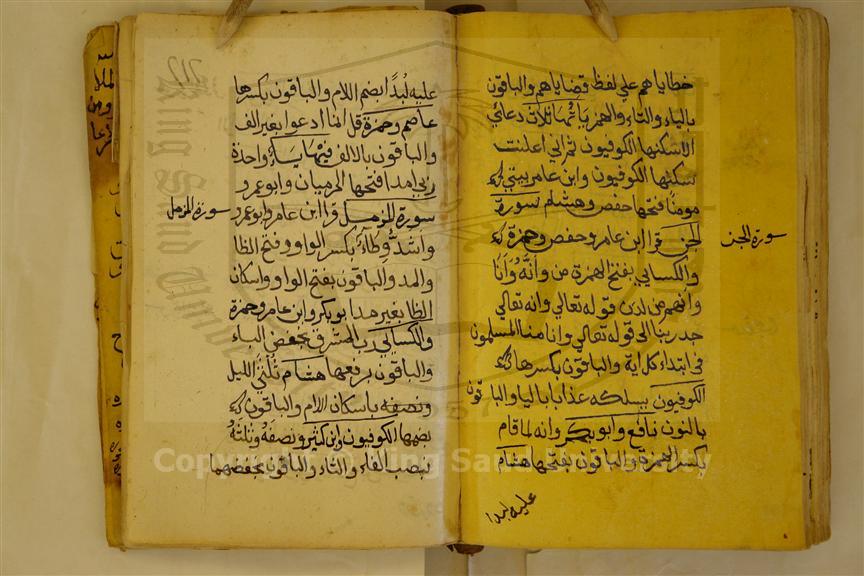 خطاياهم علي لفظ قضاياهم والباقون
بالياء والتاء والهمز ياتها ثلاث دعائي
الا سكنها الكوفيون ثم اني اعلنت
سكنها الكوفيون وابن عامر بيتي
مومنا فتحها حفص وهشام سورة
الجن قرا ابن عامر وحفص وحمزة
والكسائي بفتح الهمزة من وأنه وأنا
وانهم من لدن قوله تعالي وانه تعالي
جد ربنا الى قوله تعالي وانا منا المسلمون
في ابتداء كل اية والباقون بكسرها
الكوفيون يسلكه عذابا باليا والباقون
بالنون نافع وابو بكر وانه لما قام
بكسر الهمزة والباقون بفتحها هشام
عليه لبدا
سورة الجن
عليه لُبدًا بضم اللام والباقون بكسرها
عاصم وحمزة قل انما ادعوا بغير الف
والباقون بالالف فيها ياء واحدة
ربي امدا فتحها الحرميان وابو عمرو
سورة المزمل قرا ابن عامر وابو عمرو
واشد وطاء بكسر الواو وفتح الطا
والمد والباقون بفتح الواو واسكان
الطا بغير مد ابو بكر وابن عامر وحمزة
والكسائي رب المشرق بخفض الباء
والباقون برفعها هشام ثلثي الليل
ونصفه باسكان اللام والباقون
بضمها الكوفيون وابن كثير ونصفه وثلثه
بنصب الفاء والثاء والباقون بخفضهما
سورة المزمل
Copyright © King Saud University